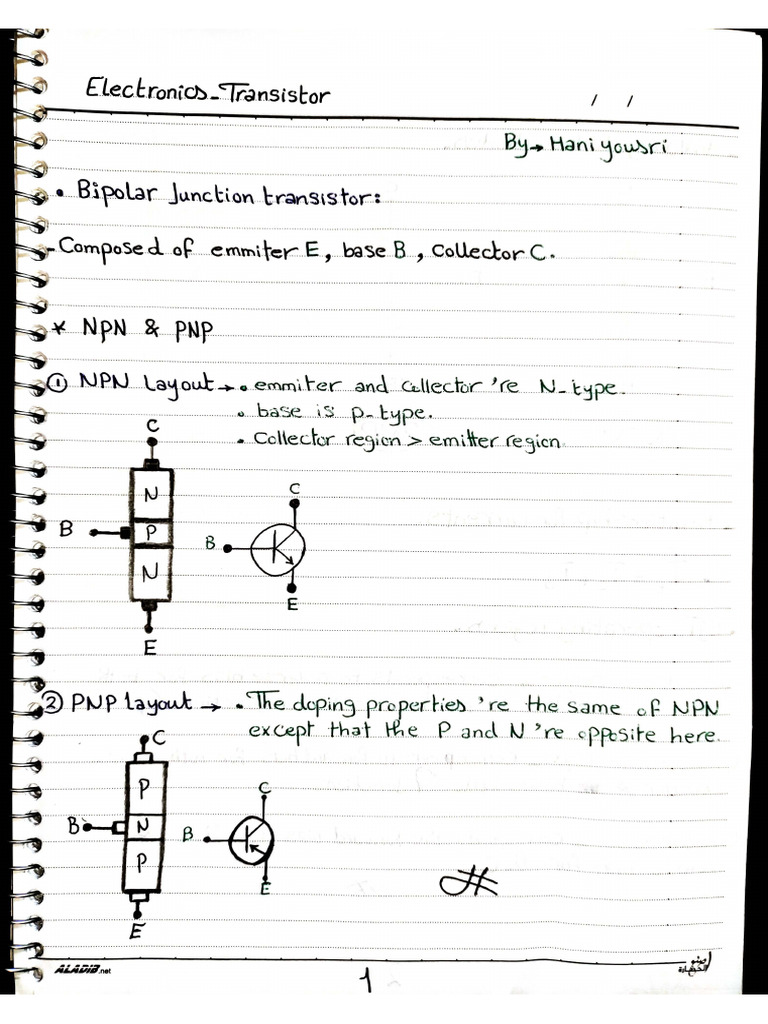 Electronics-Transistor
/ /
By→ Hani yousri
• Bipolar Junction transistor:
-Composed of emmiter E, base B, Collector C.
* NPN & PNP
① NPN Layout → • emmiter and collector 're N-type.
• base is p-type.
• Collector region > emitter region
C
N
B
P
N
E
C
B
E
② PNP layout → • The doping properties 're the same of NPN
except that the P and N 're opposite here.
C
P
B
N
P
E
C
B
E
ALADIB.net
1